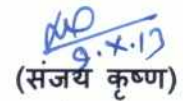 9.X.13
(संजय कृष्ण)